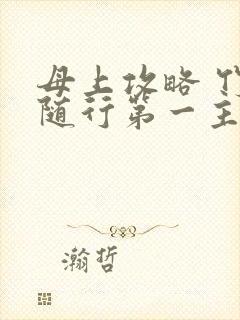 母上攻略
随行第一主
瀚哲